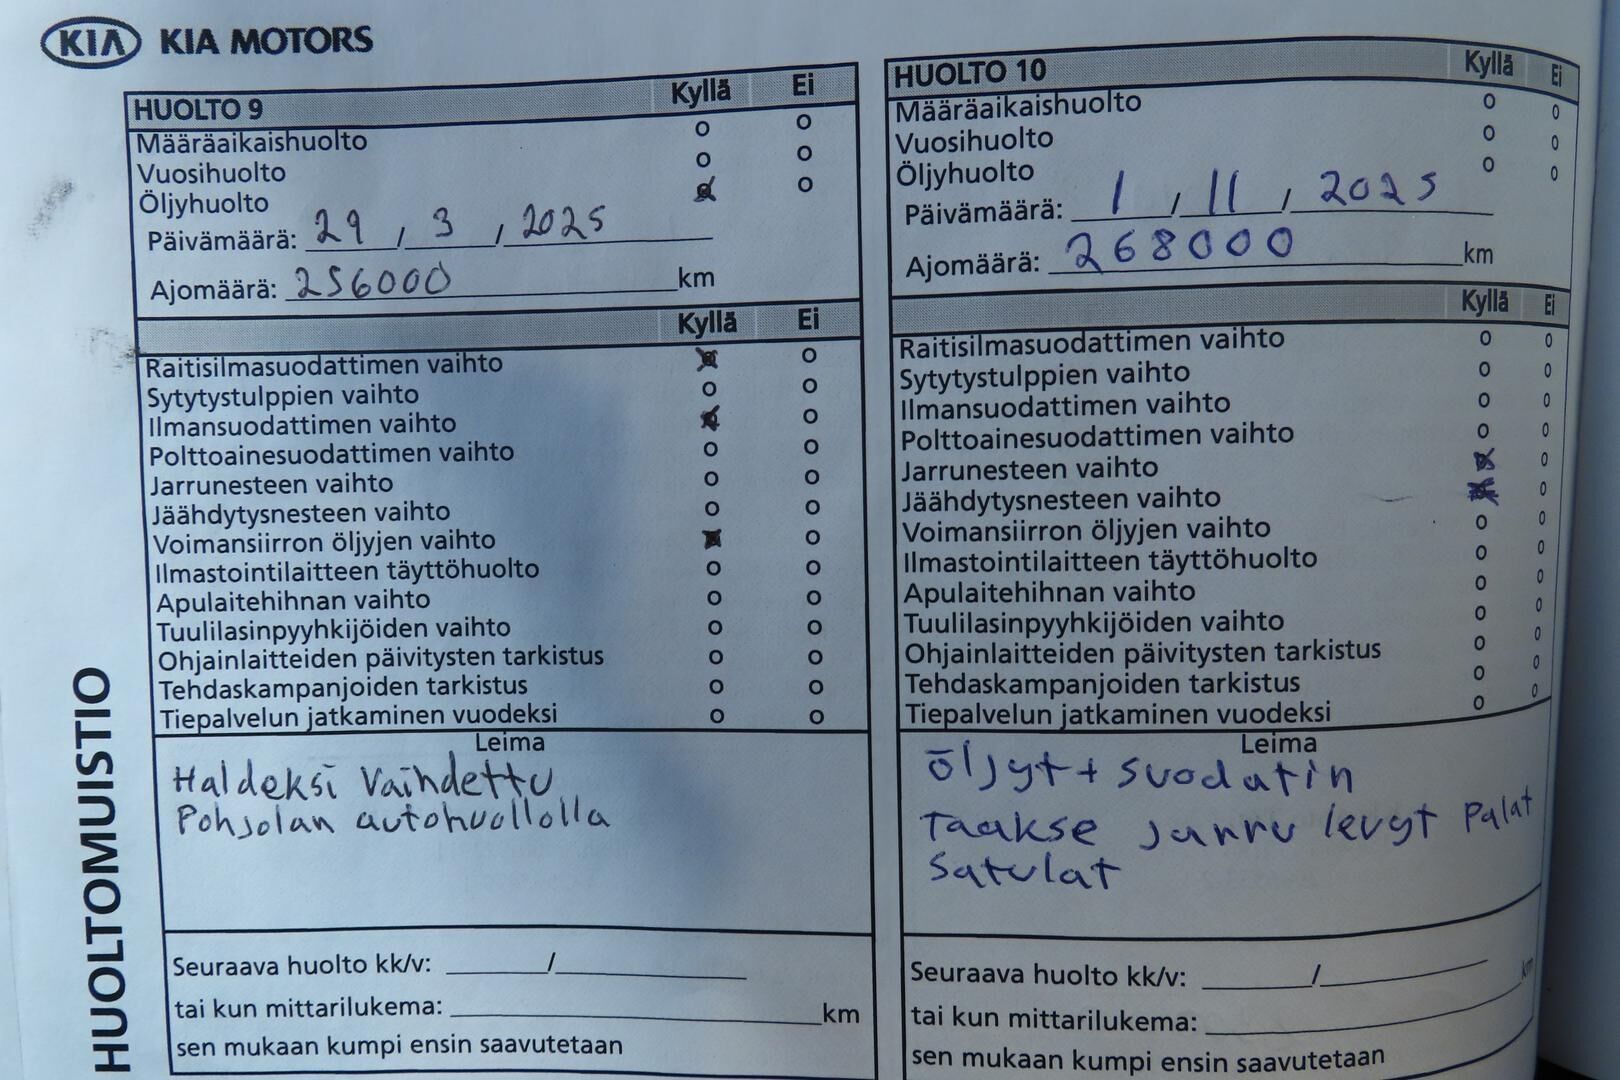 KIA KIA MOTORS
HUOLTO 9 Kyllä Ei
Määräaikaishuolto o o
Vuosihuolto o o
Öljyhuolto o o
Päivämäärä: 29 , 3 , 2025
Ajomäärä: 256000 km
Kyllä Ei
Raitisilmasuodattimen vaihto o o
Sytytystulppien vaihto o o
Ilmansuodattimen vaihto o o
Polttoainesuodattimen vaihto o o
Jarrunesteen vaihto o o
Jäähdytysnesteen vaihto o o
Voimansiirron öljyjen vaihto o o
Ilmastointilaitteen täyttöhuolto o o
Apulaitehihnan vaihto o o
Tuulilasinpyyhkijöiden vaihto o o
Ohjainlaitteiden päivitysten tarkistus o o
Tehdaskampanjoiden tarkistus o o
Tiepalvelun jatkaminen vuodeksi o o
Leima
Haldeksi Vaihdettu
Pohjolan autohuollolla
Seuraava huolto kk/v: /
tai kun mittarilukema: km
sen mukaan kumpi ensin saavutetaan
HUOLTO 10 Kyllä Ei
Määräaikaishuolto o o
Vuosihuolto o o
Öljyhuolto o o
Päivämäärä: 1 , 11 , 2025
Ajomäärä: 268000 km
Kyllä Ei
Raitisilmasuodattimen vaihto o o
Sytytystulppien vaihto o o
Ilmansuodattimen vaihto o o
Polttoainesuodattimen vaihto o o
Jarrunesteen vaihto o o
Jäähdytysnesteen vaihto o o
Voimansiirron öljyjen vaihto o o
Ilmastointilaitteen täyttöhuolto o o
Apulaitehihnan vaihto o o
Tuulilasinpyyhkijöiden vaihto o o
Ohjainlaitteiden päivitysten tarkistus o o
Tehdaskampanjoiden tarkistus o o
Tiepalvelun jatkaminen vuodeksi o
Leima
öljyt + suodatin
Taakse jarru levyt Palat
Satulat
Seuraava huolto kk/v: /
tai kun mittarilukema: km
sen mukaan kumpi ensin saavutetaan
HUOLTOMUISTIO